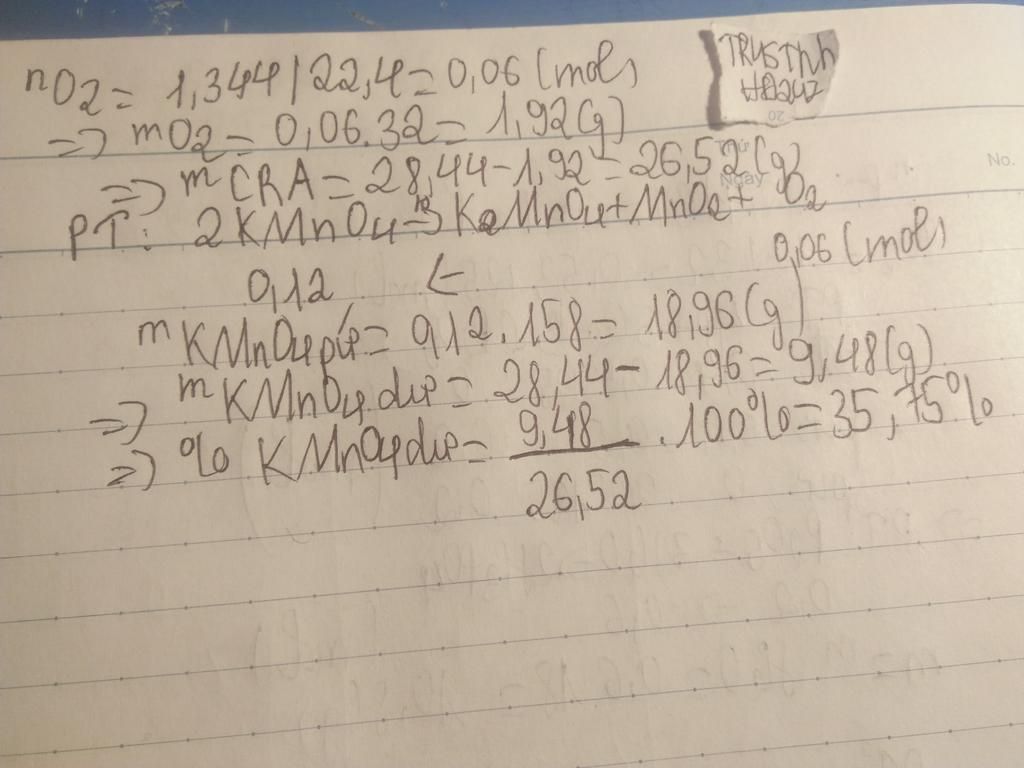 nO2 = 1,344 / 22,4 = 0,06 (mol)
TRUSTnh
=) mO2 = 0,06.32 = 1,92(g)
=) mCRA = 28,44 - 1,92 = 26,52 (g)
No.
Ngày
PT: 2KMnO4 -> K2MnO4 + MnO2 + O2
0,12 <- 0,06 (mol)
mKMnO4 pứ = 0,12 . 158 = 18,96 (g)
=) mKMnO4 dư = 28,44 - 18,96 = 9,48 (g)
=) % KMnO4 dư = 9,48 / 26,52 . 100% = 35,75%